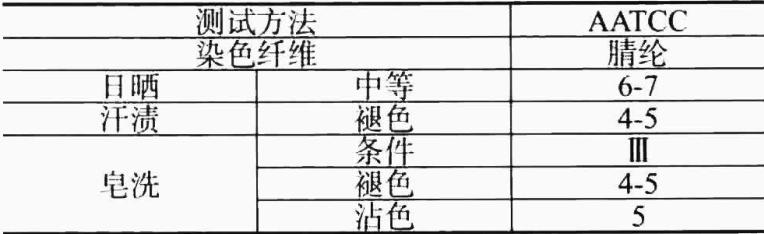 测试方法 AATCC
染色纤维 腈纶
日晒 中等 6-7
汗渍 褪色 4-5
皂洗 条件 Ⅲ
褪色 4-5
沾色 5